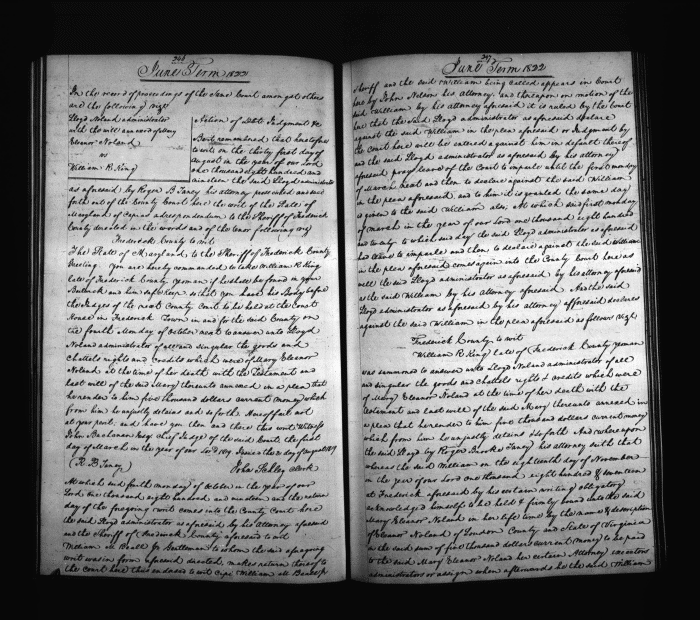 246
June Term 1822
In the record of proceedings of the same Court amongst others
are the following viz
Lloyd Noland administrator
with the will annexed of Mary
Eleanor Noland
vs
William R. King
Action of Debt Judgment &c
Be it remembered that heretofore
to wit on the thirty first day of
August in the year of our Lord
one thousand eight hundred and
nineteen the said Lloyd administrator
as aforesaid by Roger B. Taney his attorney prosecuted and sued
forth out of the County Court here the writ of the State of
Maryland of Capias ad respondendum to the Sheriff of Frederick
County directed in the words and of the tenor following viz
Frederick County to wit
The State of Maryland, to the Sheriff of Frederick County
Greeting. You are hereby commanded to take William R. King
late of Frederick County yeoman if he shall be found in your
Bailiwick and him safe keep so that you have his Body before
the Judges of the next County Court to be held at the Court
House in Frederick Town in and for the said County on
the fourth Monday of October next to answer unto Lloyd
Noland administrator of all and singular the goods and
Chattels rights and Credits which were of Mary Eleanor
Noland at the time of her death with the Testament and
last will of the said Mary thereunto annexed in a plea that
he render to him five thousand dollars current money which
from him he unjustly detains and so forth Hereof fail not
at your peril and have you then and there this writ Witness
John Buchanan Esqr. Chief Judge of the said Court the first
day of March in the year of our Lord 1819 Issued the 31 day of August 1819
(R. B. Taney) John Schley Clerk
At which said fourth monday of October in the year of our
Lord one thousand eight hundred and nineteen and the return
day of the foregoing writ comes into the County Court here
the said Lloyd administrator as aforesaid by his attorney aforesaid
and the Sheriff of Frederick County aforesaid to wit
William M. Beall Jr. Gentleman to whom the said foregoing
writ was in form aforesaid directed, makes return thereof to
the Court here thus endorsed to wit Cepi William M. Beall Jr.
247
June Term 1822
Sheriff and the said William being called appears in Court
here by John Nelson his attorney and thereupon on motion of the
said William by his attorney aforesaid it is ruled by the Court
here that the said Lloyd administrator as aforesaid declare
against the said William in the plea aforesaid or Judgment by
the Court here will be entered against him in default thereof
and the said Lloyd administrator as aforesaid by his attorney
aforesaid prays leave of the Court to imparle until the first monday
of March next and then to declare against the said William
in the plea aforesaid and to him it is granted the same day
is given to the said William also, At which said first monday
of March in the year of our Lord one thousand eight hundred
and twenty to which said day the said Lloyd administrator as aforesaid
had leave to imparle and then to declare against the said William
in the plea aforesaid comes again into the County Court here as
well the said Lloyd administrator as aforesaid by his attorney aforesaid
as the said William by his attorney aforesaid And the said
Lloyd administrator as aforesaid by his attorney aforesaid declares
against the said William in the plea aforesaid as follows viz
Frederick County to wit
William R. King late of Frederick County yeoman
was summoned to answer unto Lloyd Noland administrator of all
and singular the goods and chattels rights & credits which were
of Mary Eleanor Noland at the time of her death with the
testament and last will of the said Mary thereunto annexed in
a plea that he render to him five thousand dollars current money
which from him he unjustly detains & so forth And whereupon
the said Lloyd by Roger Brooke Taney his attorney saith that
whereas the said William on the eighteenth day of November
in the year of our Lord one thousand eight hundred & seventeen
at Frederick aforesaid by his certain writing obligatory
acknowledged himself to be held & firmly bound unto the said
Mary Eleanor Noland in her life time by the name & description
of Eleanor Noland of Loudon County and State of Virginia
in the said sum of five thousand dollars current money to be paid
to the said Mary Eleanor Noland her certain Attorney executors
administrators or assigns when afterwards he the said William